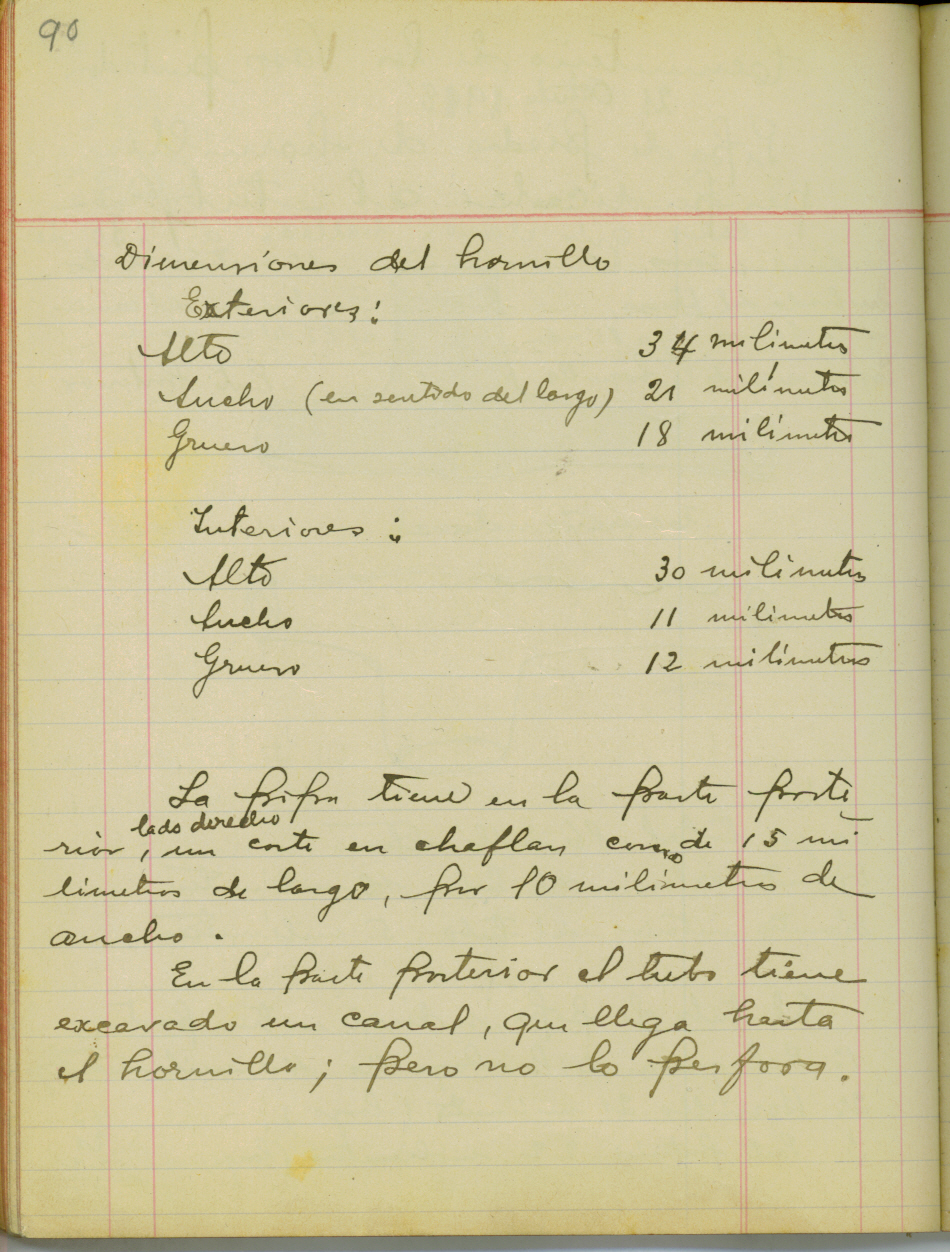 90
Dimensiones del hornillo
Exteriores:
Alto 34 milímetros
Ancho (en sentido del largo) 21 milímetros
Grueso 18 milímetros
Interiores:
Alto 30 milímetros
Ancho 11 milimetros
Grueso 12 milímetros
La pipa tiene en la parte poste
lado derecho
rior, un corte en chaflan como de 15 mi
límetros de largo, por 10 milímetros de
ancho.
En la parte posterior el tubo tiene
excavado un canal, que llega hasta
el hornillo; pero no lo perfora.